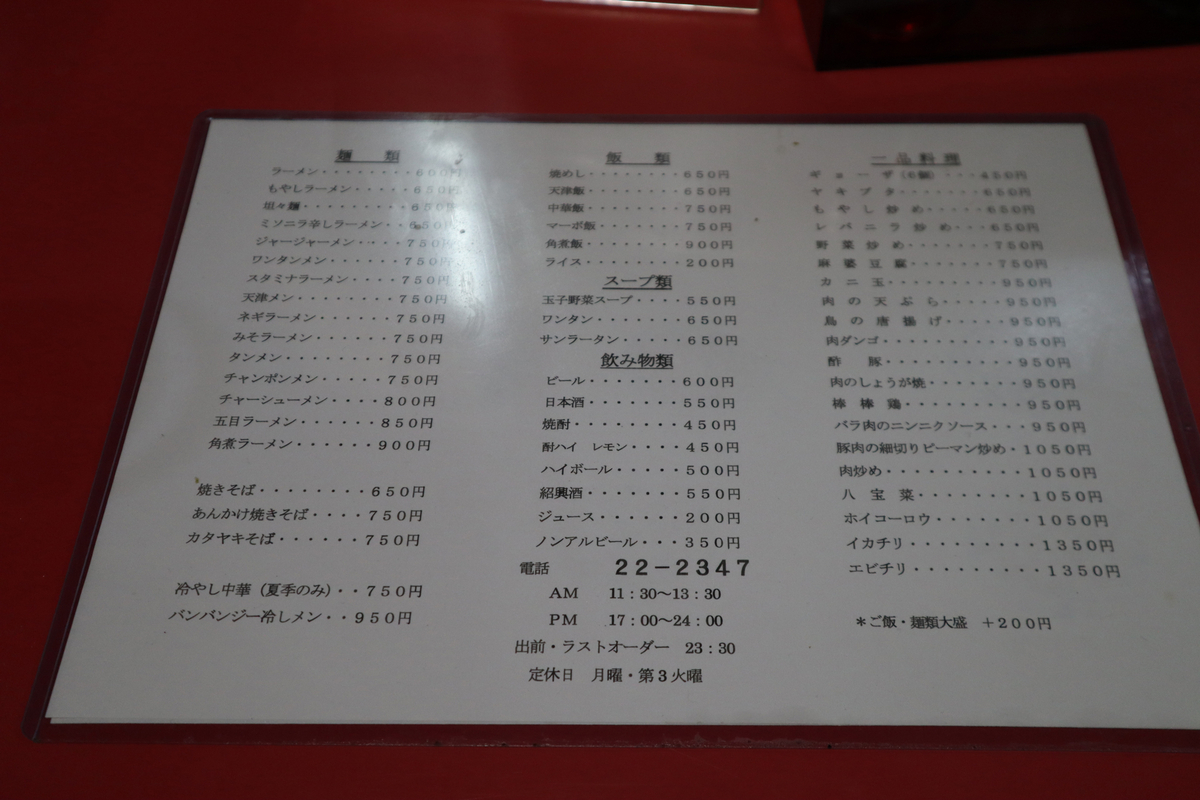 麺　類
ラーメン・・・・・・・・６００円
もやしラーメン・・・・・６５０円
坦々麺・・・・・・・・・６５０
ミソニラ辛しラーメン・・６５０円
ジャージャーメン・・・・７５０
ワンタンメン・・・・・・７５０
スタミナラーメン・・・・７５０円
天津メン・・・・・・・・７５０円
ネギラーメン・・・・・・７５０円
みそラーメン・・・・・・７５０円
タンメン・・・・・・・・７５０円
チャンポンメン・・・・・７５０円
チャーシューメン・・・・８００円
五目ラーメン・・・・・・８５０円
角煮ラーメン・・・・・・９００円
焼きそば・・・・・・・・６５０円
あんかけ焼きそば・・・・７５０円
カタヤキそば・・・・・・７５０円
冷やし中華（夏季のみ）・・７５０円
バンバンジー冷しメン・・９５０円
飯　類
焼めし・・・・・・・６５０円
天津飯・・・・・・・６５０円
中華飯・・・・・・・７５０円
マーボ飯・・・・・・７５０円
角煮飯・・・・・・・９００円
ライス・・・・・・・２００円
スープ類
玉子野菜スープ・・・・５５０円
ワンタン・・・・・・・６５０円
サンラータン・・・・・６５０円
飲み物類
ビール・・・・・・・６００円
日本酒・・・・・・・５５０円
焼酎・・・・・・・・４５０円
酎ハイ　レモン・・・・４５０円
ハイボール・・・・・５００円
紹興酒・・・・・・・５５０円
ジュース・・・・・・２００円
ノンアルビール・・・３５０円
電話　２２－２３４７
ＡＭ　11：30～13：30
ＰＭ　17：00～24：00
出前・ラストオーダー　23：30
定休日　月曜・第３火曜
一品料理
ギョーザ（６個）・・・４５０円
ヤキブタ・・・・・・・６５０円
もやし炒め・・・・・・６５０円
レバニラ炒め・・・・・６５０円
野菜炒め・・・・・・・７５０円
麻婆豆腐・・・・・・・７５０円
カニ玉・・・・・・・・９５０円
肉の天ぷら・・・・・・９５０円
鳥の唐揚げ・・・・・・９５０円
肉ダンゴ・・・・・・・９５０円
酢　豚・・・・・・・・９５０円
肉のしょうが焼・・・・９５０円
棒棒鶏・・・・・・・・９５０円
バラ肉のニンニクソース・・・９５０円
豚肉の細切りピーマン炒め・１０５０円
肉炒め・・・・・・・・１０５０円
八宝菜・・・・・・・・１０５０円
ホイコーロウ・・・・・・・１０５０円
イカチリ・・・・・・・・・１３５０円
エビチリ・・・・・・・・・１３５０円
＊ご飯・麺類大盛　＋２００円